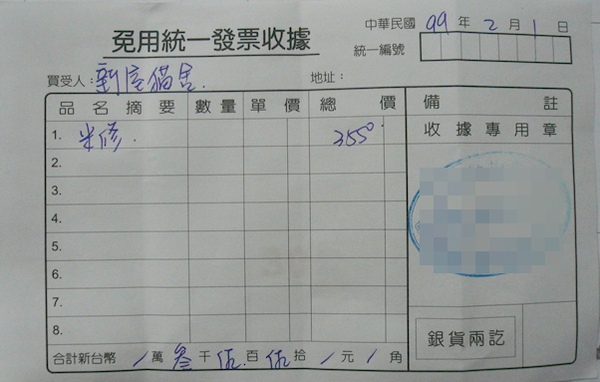 免用統一發票收據
中華民國 99 年 2 月 1 日
統一編號
買受人：新室貓舍.
地址：
品名摘要 數量 單價 總價 備註
1. 米修. 3550.
收據專用章
2.
3.
4.
5.
6.
7.
8.
銀貨兩訖
合計新台幣 / 萬 叁 千 伍 百 伍 拾 / 元 / 角